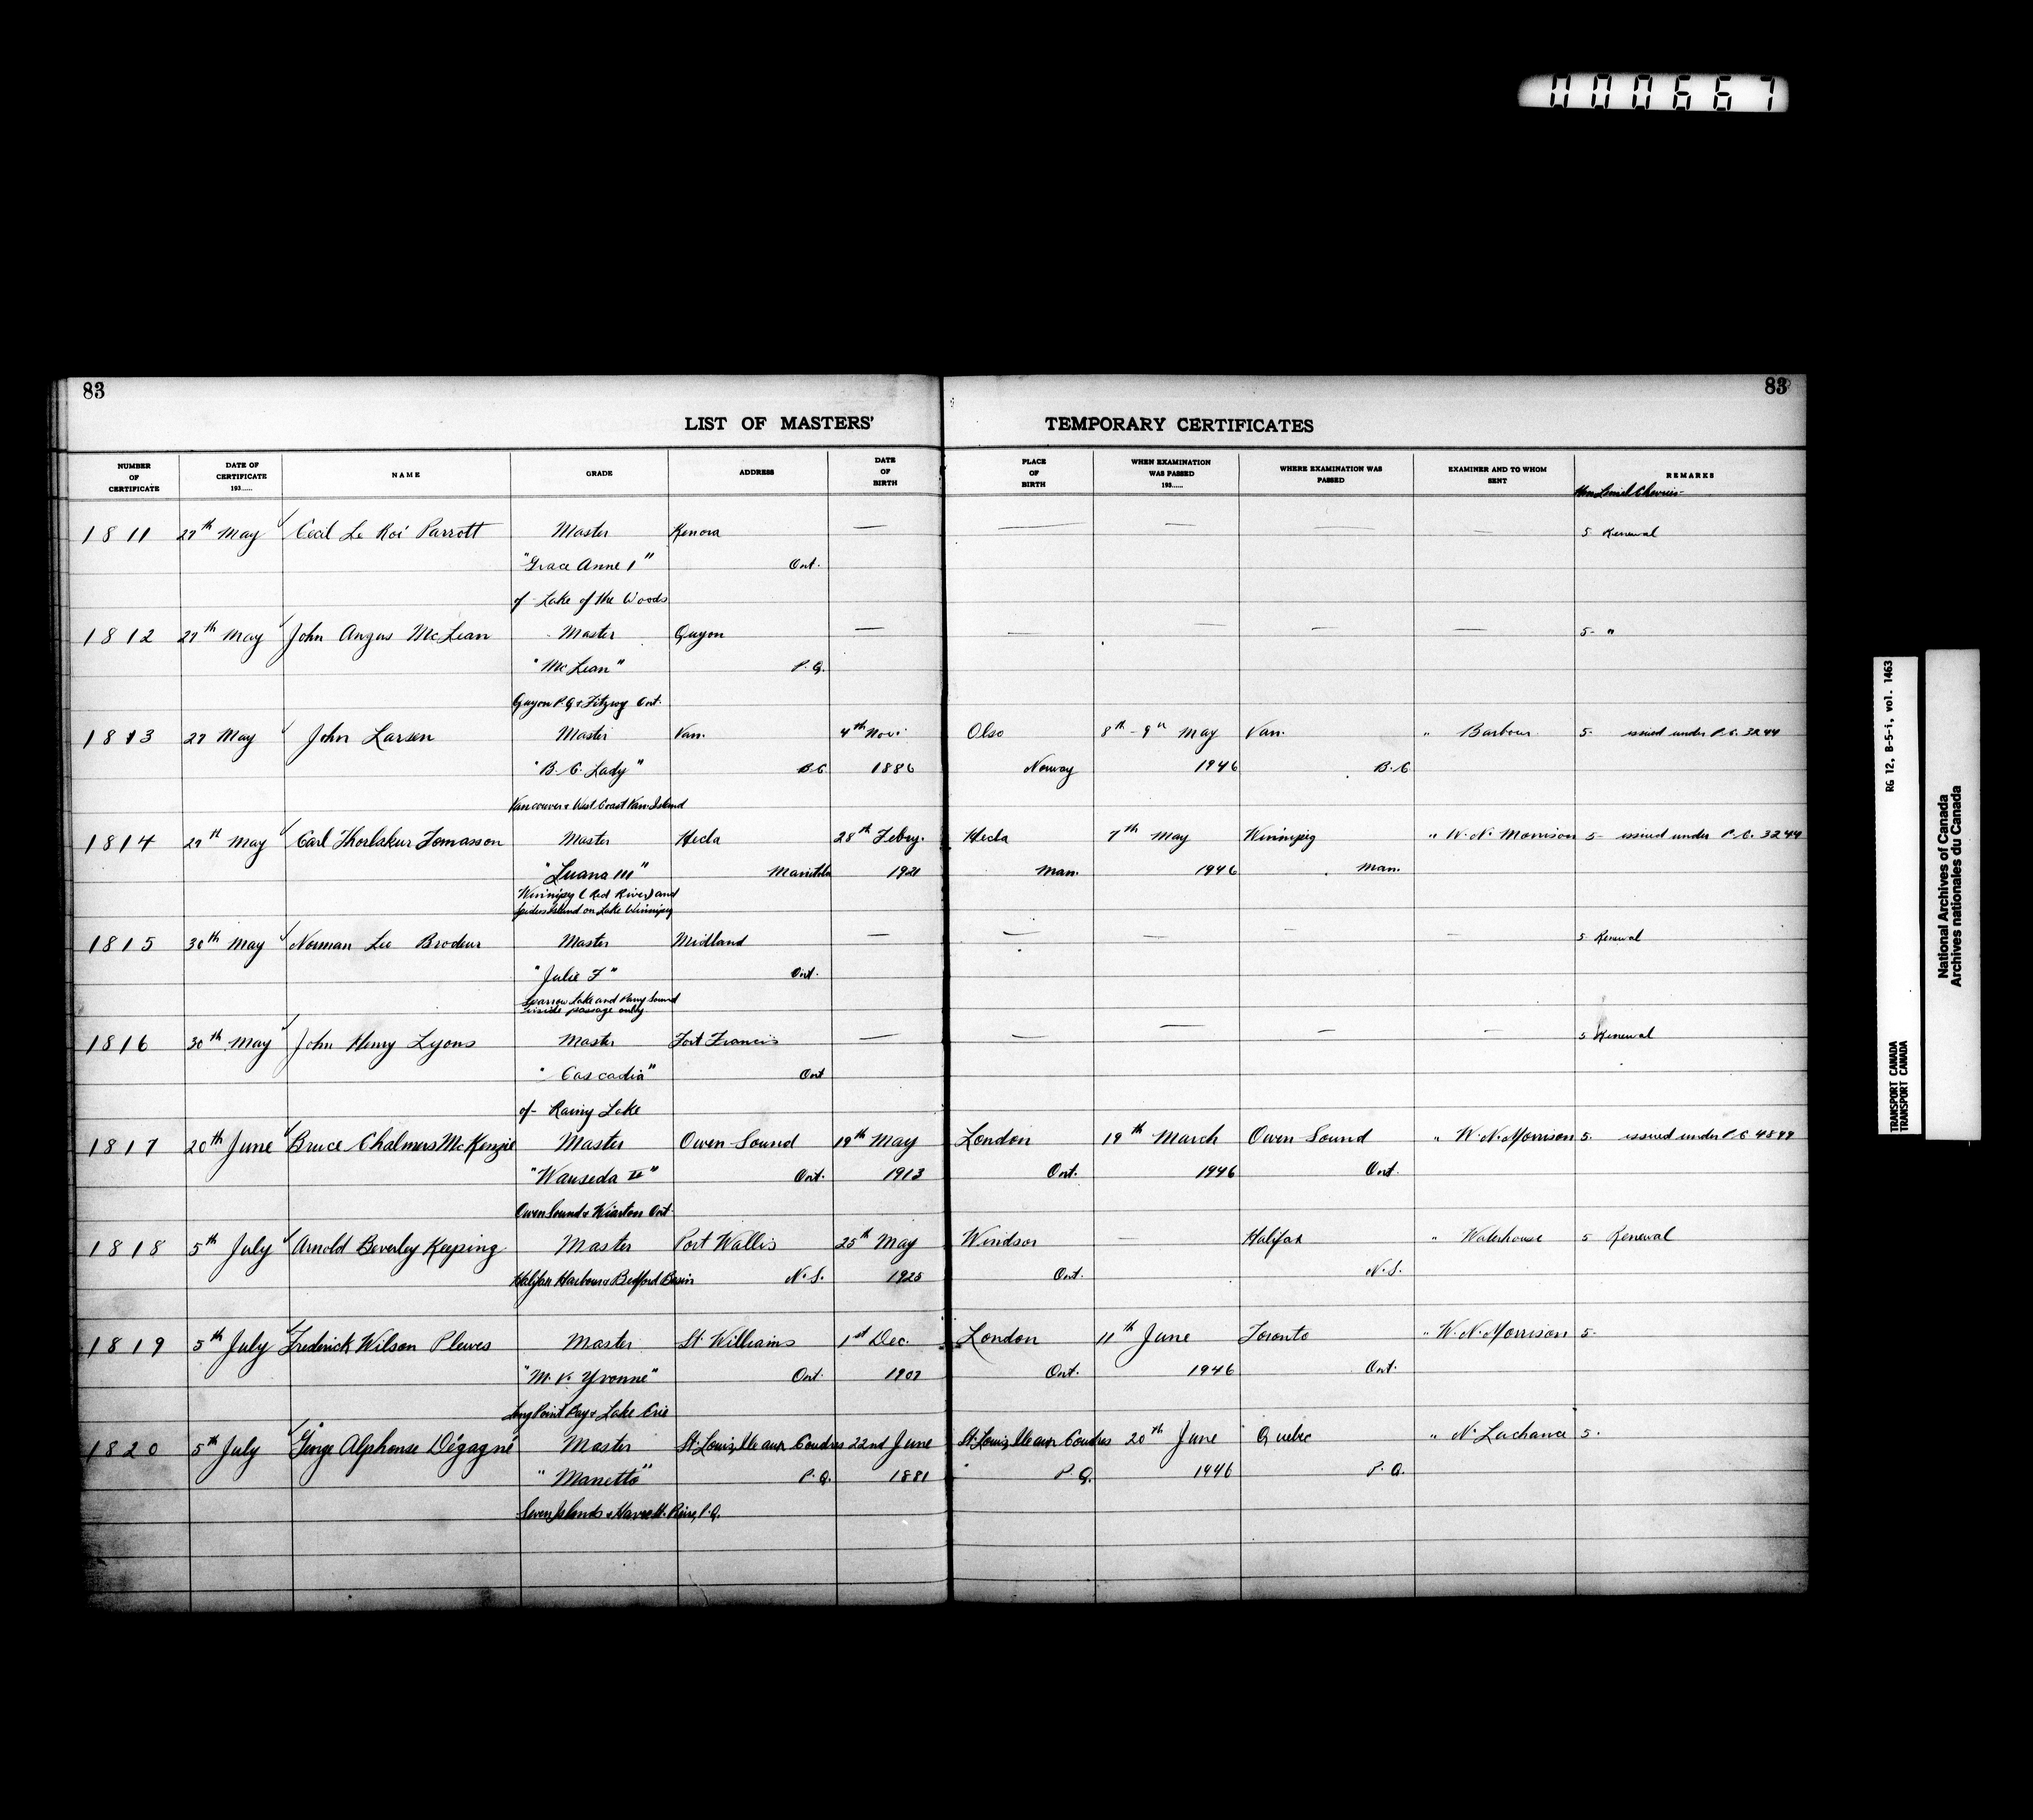 000667
83 83
LIST OF MASTERS' TEMPORARY CERTIFICATES
NUMBER OF CERTIFICATE DATE OF CERTIFICATE 193...... NAME GRADE ADDRESS DATE OF BIRTH PLACE OF BIRTH WHEN EXAMINATION WAS PASSED 193...... WHERE EXAMINATION WAS PASSED EXAMINER AND TO WHOM SENT REMARKS
Hon Lionel Chevrier
1811 27th May Cecil Le Roi Parrott Master Kenora — — — — — 5 Renewal
"Grace Anne 1" Ont.
of Lake of the Woods
1812 27th May John Angus McLean Master Quyon — — — — — 5- "
"McLean" P.Q.
Quyon P.Q & Fitzroy Ont.
1813 27 May John Larsen Master Van. 4th Nov. Olso 8th - 9th May Van. " Barbour 5- issued under P.C. 3244
"B.C. Lady" B.C 1886 Norway 1946 B.C
Vancouver & West Coast Van. Island
1814 27th May Carl Thorlskur Tomasson Master Hecla 28th Febry. Hecla 7th May Winnipeg " W.N. Morrison 5- issued under P.C. 3244
"Luana III" Manitoba 1921 Man. 1946 Man.
Winnipeg (Red River) and
Island on Lake Winnipeg
1815 30th May Norman Lee Brodeur Master Midland — — — — — 5- Renewal
"Julie F" Ont.
Sparrow Lake and Parry Sound
inside passage only.
1816 30th May John Henry Lyons Master Fort Francis — — — — — 5 Renewal
"Cascadia" Ont
of- Rainy Lake
1817 20th June Bruce Chalmers McKenzie Master Owen Sound 19th May London 19th March Owen Sound " W.N. Morrison 5. issued under P.C 4899
"Wauseda II" Ont. 1913 Ont. 1946 Ont.
Owen Sound & Wiarton Ont.
1818 5th July Arnold Beverley Keeping Master Port Wallis 25th May Windsor — Halifax " Waterhouse 5 Renewal
Halifax Harbour & Bedford Basin N.S. 1925 Ont. N.S.
1819 5th July Frederick Wilson Plewes Master St. Williams 1st Dec. London 11th June Toronto " W.N. Morrison 5.
"M.V. Yvonne" Ont. 1907 Ont. 1946 Ont.
Long Point Bay & Lake Erie
1820 5th July George Alphonse Dégagné Master St. Louis, Ile aux Coudres 22nd June St. Louis, Ile aux Coudres 20th June Quebec " N. Lachance 5.
"Manetto" P.Q. 1881 P.Q. 1946 P.Q.
Seven Islands & Havre St. Pierre, P.Q.
RG 12, B-5-i, vol. 1463
TRANSPORT CANADA
TRANSPORT CANADA
National Archives of Canada
Archives nationales du Canada